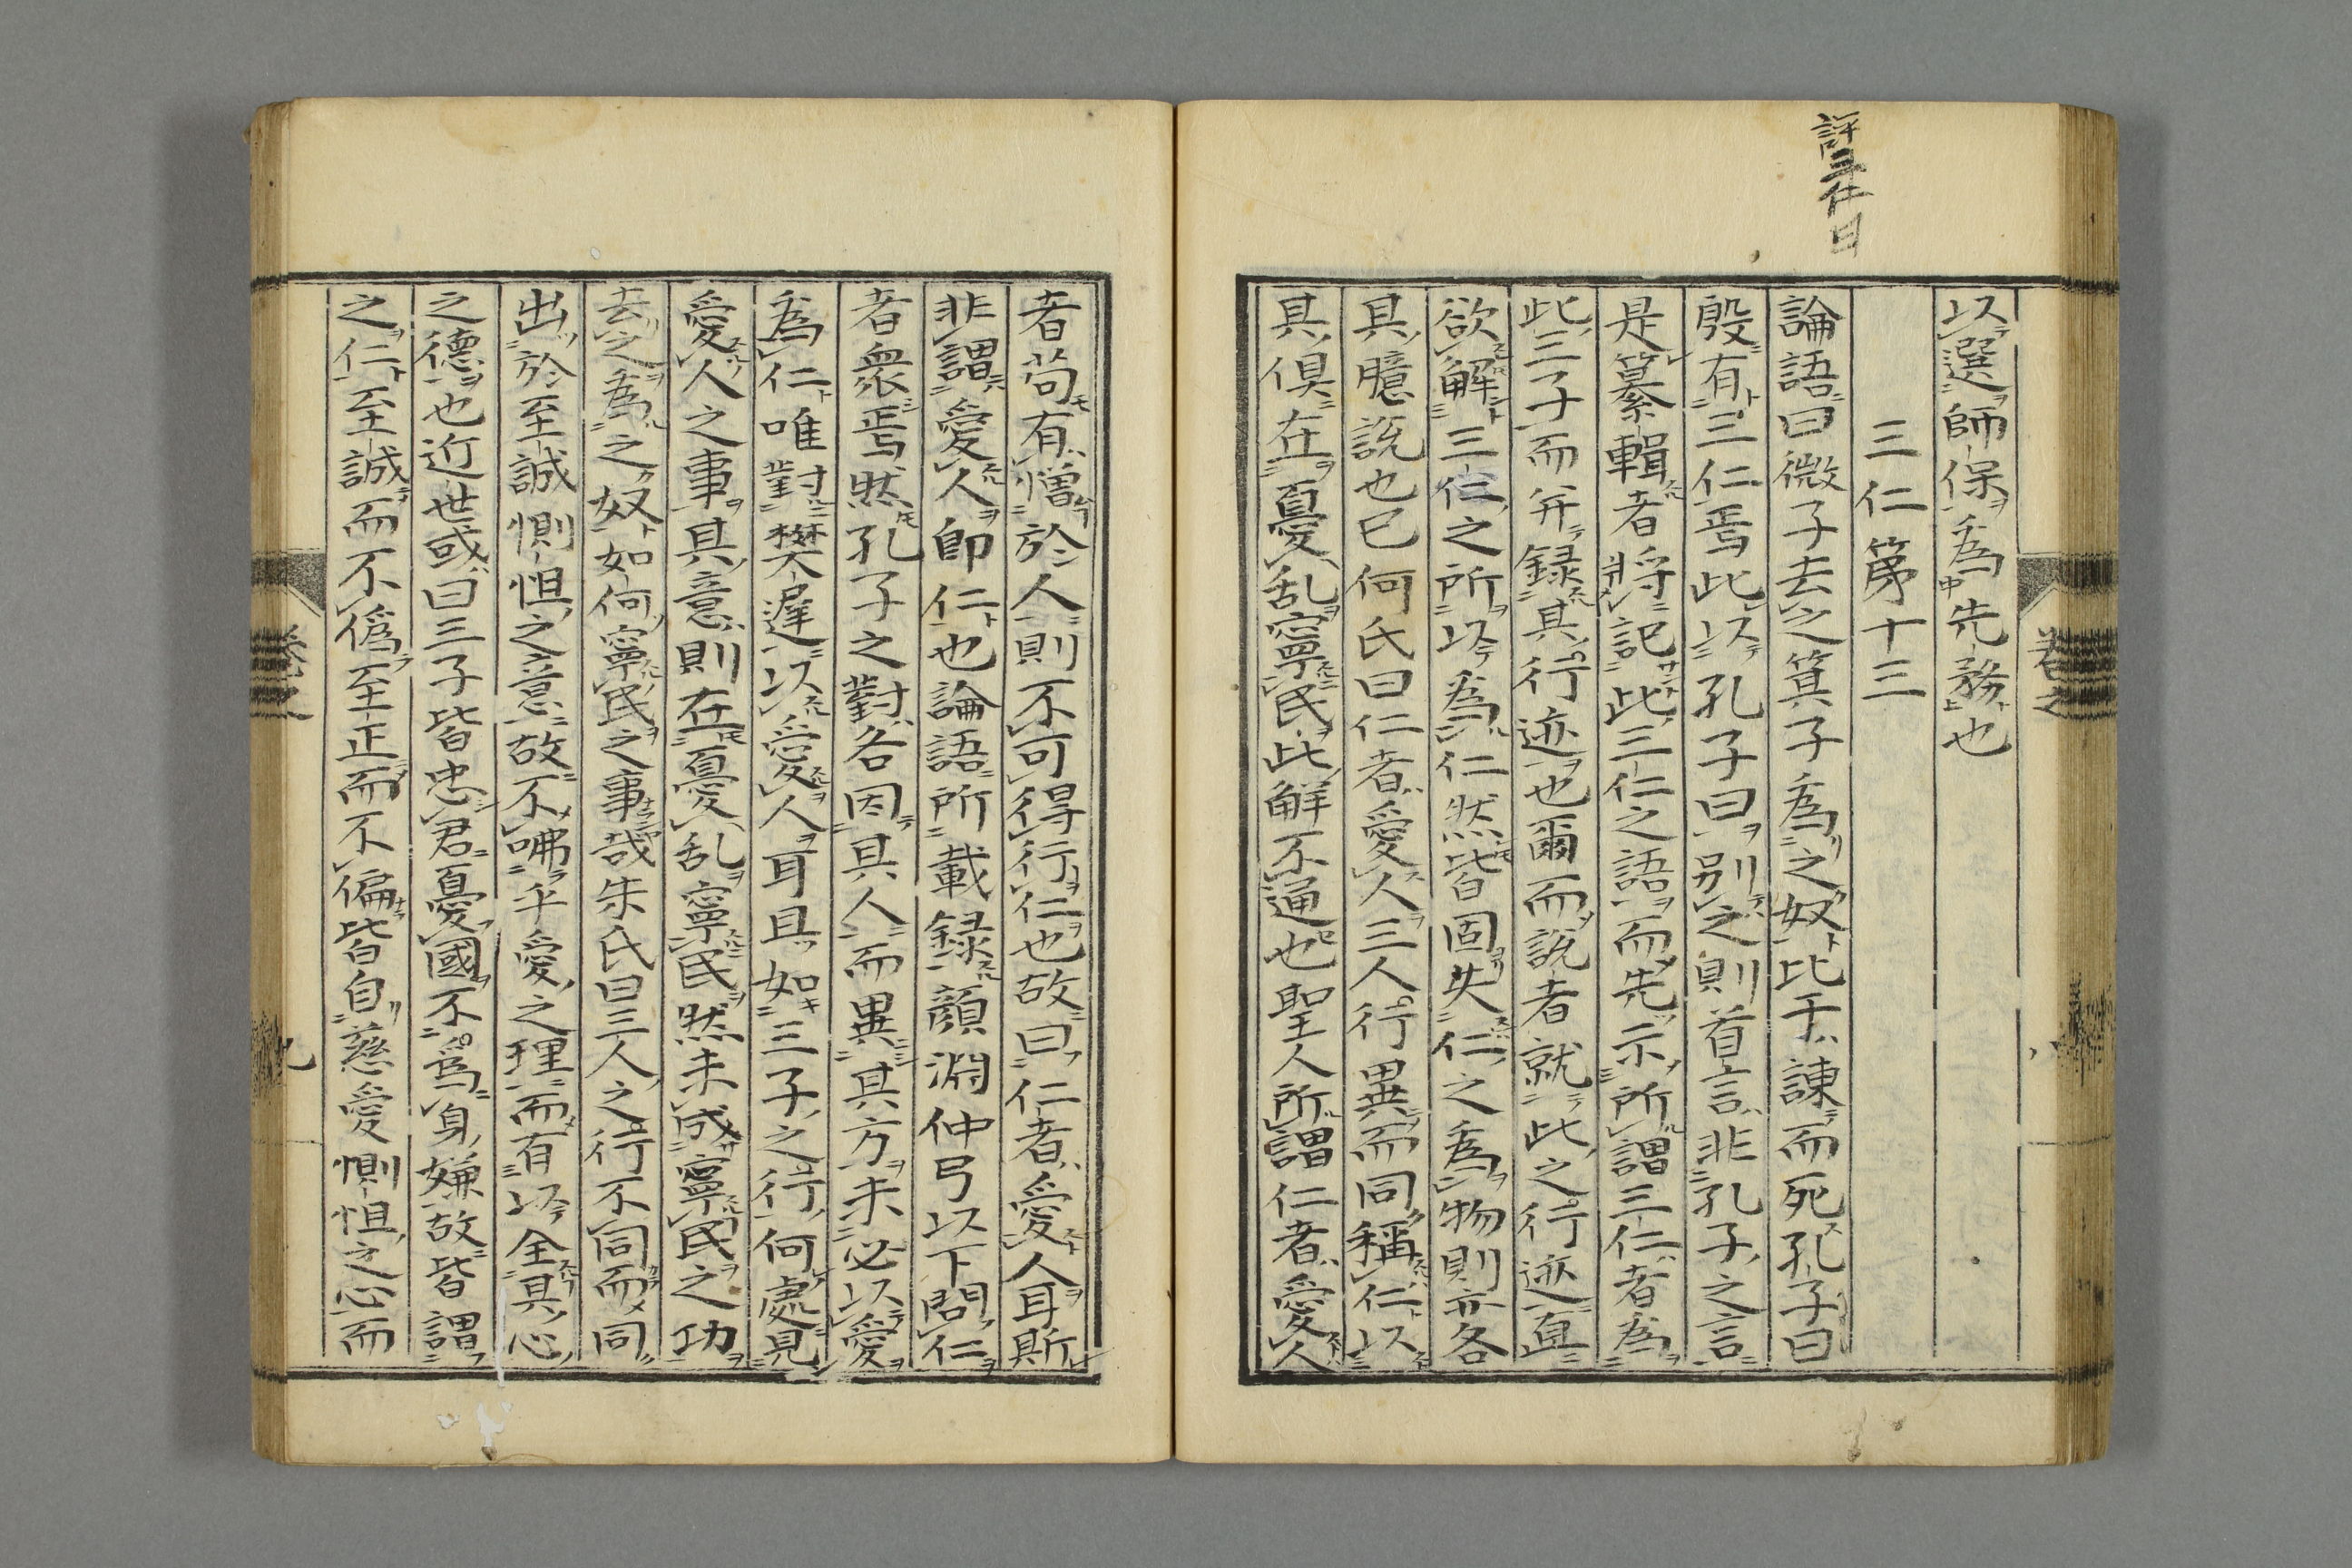 評三仁曰
以選師保爲先務也
三仁第十三
論語曰微子去之箕子爲之奴比干諫而死孔子曰
殷有三仁焉此以孔子曰別之則首言非孔子之言
是纂輯者將記此三仁之語而先示所謂三仁者爲
此三子而并録其行迹也爾而說者就此之行迹直
欲解三仁之所以爲仁然皆固失仁之爲物則亦各
具臆説也已何氏曰仁者愛人三人行異而同稱仁以
具倶在憂乱寧民此解不通也聖人所謂仁者愛人
者苟有憎於人則不可得行仁也故曰仁者愛人耳斯
非謂愛人即仁也論語所載録顔淵仲弓以下問仁
者衆焉然孔子之對各因其人而異其方未必以愛
爲仁唯對樊遲以愛人耳且如三子之行何處見
愛人之事其意則在憂乱寧民然未成寧民之功
去之爲之奴如何寧民之事哉朱氏曰三人之行不同而同
出於至誠惻怛之意故不咈乎愛之理而有以全其心
之德也近世或曰三子皆忠君憂國不爲身嫌故皆謂
之仁至誠而不僞至正而不偏皆自慈愛惻怛之心而